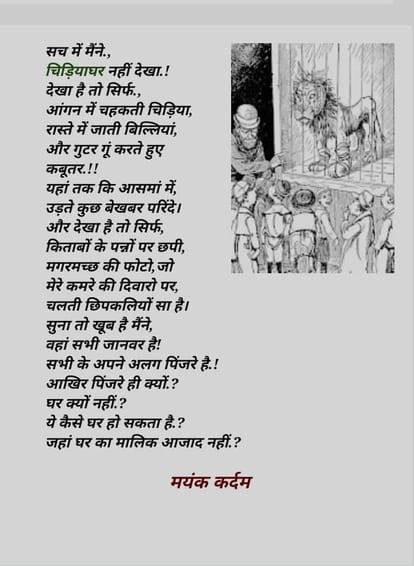 सच में मैंने.,
चिड़ियाघर नहीं देखा.!
देखा है तो सिर्फ.,
आंगन में चहकती चिड़िया,
रास्ते में जाती बिल्लियां,
और गुटर गूं करते हुए
कबूतर.!!
यहां तक कि आसमां में,
उड़ते कुछ बेखबर परिंदे।
और देखा है तो सिर्फ,
किताबों के पन्नों पर छपी,
मगरमच्छ की फोटो,जो
मेरे कमरे की दिवारो पर,
चलती छिपकलियों सा है।
सुना तो खूब है मैंने,
वहां सभी जानवर है!
सभी के अपने अलग पिंजरे है.!
आखिर पिंजरे ही क्यों.?
घर क्यों नहीं.?
ये कैसे घर हो सकता है.?
जहां घर का मालिक आजाद नहीं.?
मयंक कर्दम